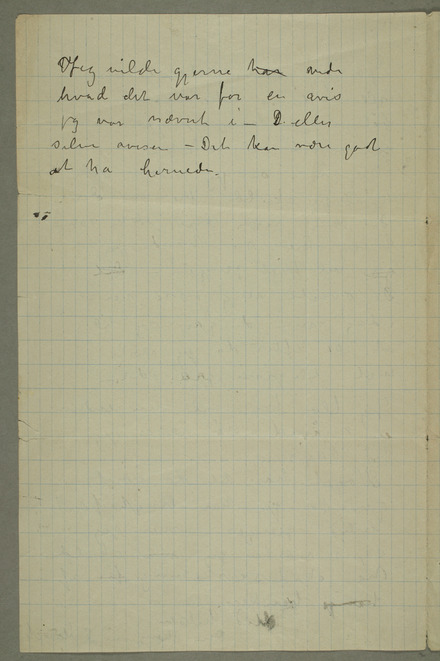 Jeg vilde gjerne ha vide
hvad det var for en avis
jeg var nævnt i – eller
selve avisen – Det kan være godt
at ha hernede.